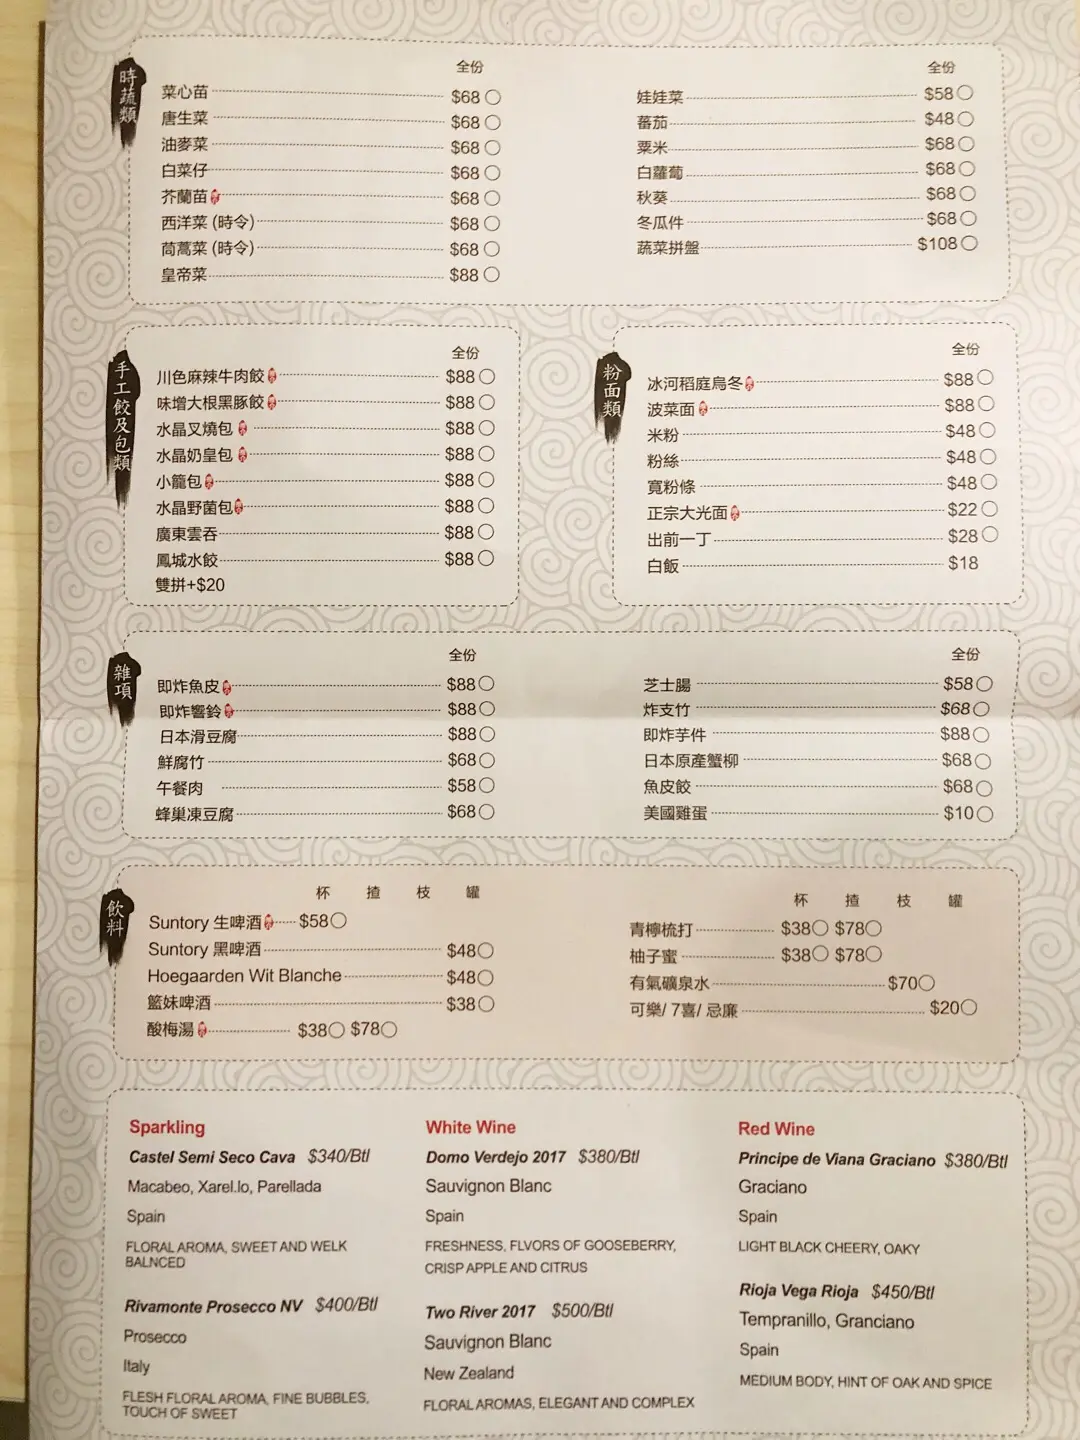 時蔬類
全份
菜心苗 $68
唐生菜 $68
油麥菜 $68
白菜仔 $68
芥蘭苗 $68
西洋菜 (時令) $68
茼蒿菜 (時令) $68
皇帝菜 $88
全份
娃娃菜 $58
蕃茄 $48
粟米 $68
白蘿蔔 $68
秋葵 $68
冬瓜件 $68
蔬菜拼盤 $108
手工餃及包類
全份
川色麻辣牛肉餃 $88
味增大根黑豚餃 $88
水晶叉燒包 $88
水晶奶皇包 $88
小籠包 $88
水晶野菌包 $88
廣東雲吞 $88
鳳城水餃 $88
雙拼+$20
粉面類
全份
冰河稻庭烏冬 $88
波菜面 $88
米粉 $48
粉絲 $48
寬粉條 $48
正宗大光面 $22
出前一丁 $28
白飯 $18
雜項
全份
即炸魚皮 $88
即炸響鈴 $88
日本滑豆腐 $88
鮮腐竹 $68
午餐肉 $58
蜂巢凍豆腐 $68
全份
芝士腸 $58
炸支竹 $68
即炸芋件 $88
日本原產蟹柳 $68
魚皮餃 $68
美國雞蛋 $10
飲料
杯 揸 枝 罐
Suntory 生啤酒 $58
Suntory 黑啤酒 $48
Hoegaarden Wit Blanche $48
籃妹啤酒 $38
酸梅湯 $38 $78
杯 揸 枝 罐
青檸梳打 $38 $78
柚子蜜 $38 $78
有氣礦泉水 $70
可樂/ 7喜/ 忌廉 $20
Sparkling
Castel Semi Seco Cava $340/Btl
Macabeo, Xarel.lo, Parellada
Spain
FLORAL AROMA, SWEET AND WELK
BALNCED
Rivamonte Prosecco NV $400/Btl
Prosecco
Italy
FLESH FLORAL AROMA, FINE BUBBLES,
TOUCH OF SWEET
White Wine
Domo Verdejo 2017 $380/Btl
Sauvignon Blanc
Spain
FRESHNESS, FLVORS OF GOOSEBERRY,
CRISP APPLE AND CITRUS
Two River 2017 $500/Btl
Sauvignon Blanc
New Zealand
FLORAL AROMAS, ELEGANT AND COMPLEX
Red Wine
Principe de Viana Graciano $380/Btl
Graciano
Spain
LIGHT BLACK CHEERY, OAKY
Rioja Vega Rioja $450/Btl
Tempranillo, Granciano
Spain
MEDIUM BODY, HINT OF OAK AND SPICE